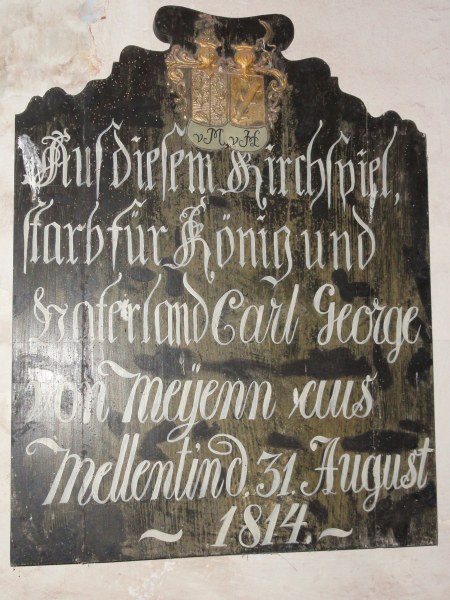 v.M. v.H.
Aus diesem Kirchspiel,
starb für König und
Vaterland Carl George
von Meÿenn aus
Mellentin d. 31. August
~ 1814. ~